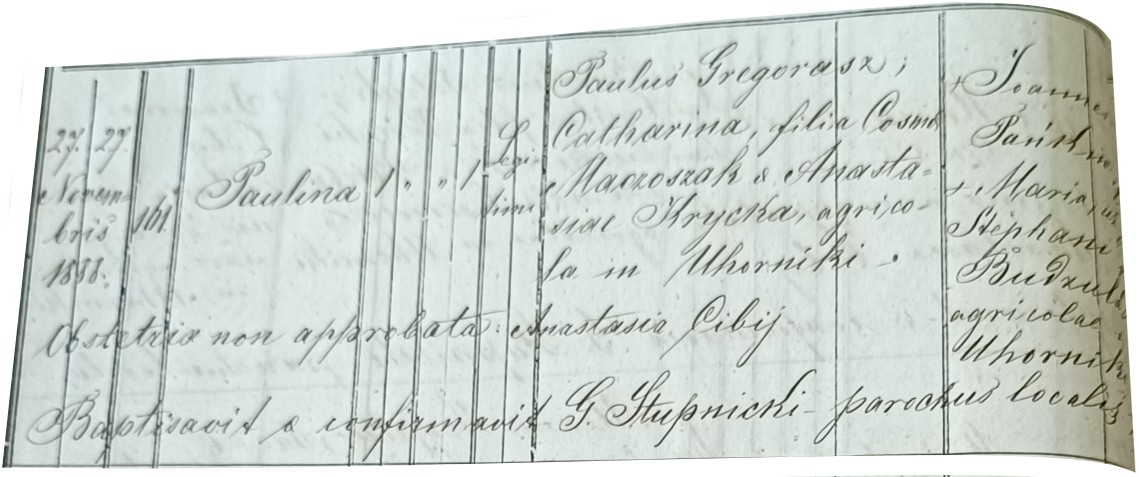 27. 27.
Novem-
bris
1888.
161
Paulina 1 " " 1
Legi-
timi
Paulus Gregorasz;
Catharina, filia Cosmae
Maczoszak & Anasta-
siae Krycka, agrico-
la in Uhorniki.
+ Joannes
+ Maria, ux.
Stephani
agricolae
Uhorniki
Obstetrix non approbata: Anastasia Cibij
Baptisavit & confirmavit G. Stupnicki - parochus localis